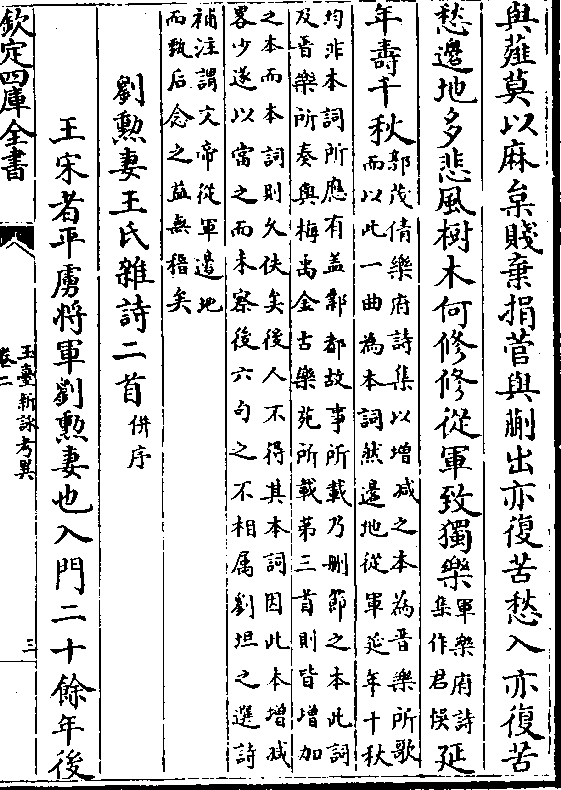 與薤莫以麻枲賤棄捐菅與蒯出亦復苦愁入亦復苦
愁邊地多悲風樹木何修修從軍致獨樂軍樂府詩集作君悞延
年壽千秋郭茂倩樂府詩集以增减之本為晉樂所歌
而以此一曲為本詞然邊地從軍延年千秋
均非本詞所應有盖鄴都故事所載乃刪節之本此詞
及晉樂所奏與梅禹金古樂苑所載第三首則皆增加
之本而本詞則久佚矣後人不得其本詞因此本增减
畧少遂以當之而未察後六句之不相屬劉坦之選詩
補注謂文帝從軍邊地
而致后念之益無稽矣
劉勲妻王氏雜詩二首併序
王宋者平虜將軍劉勲妻也入門二十餘年後
欽定四庫全書
玉臺新詠考異
卷二
三